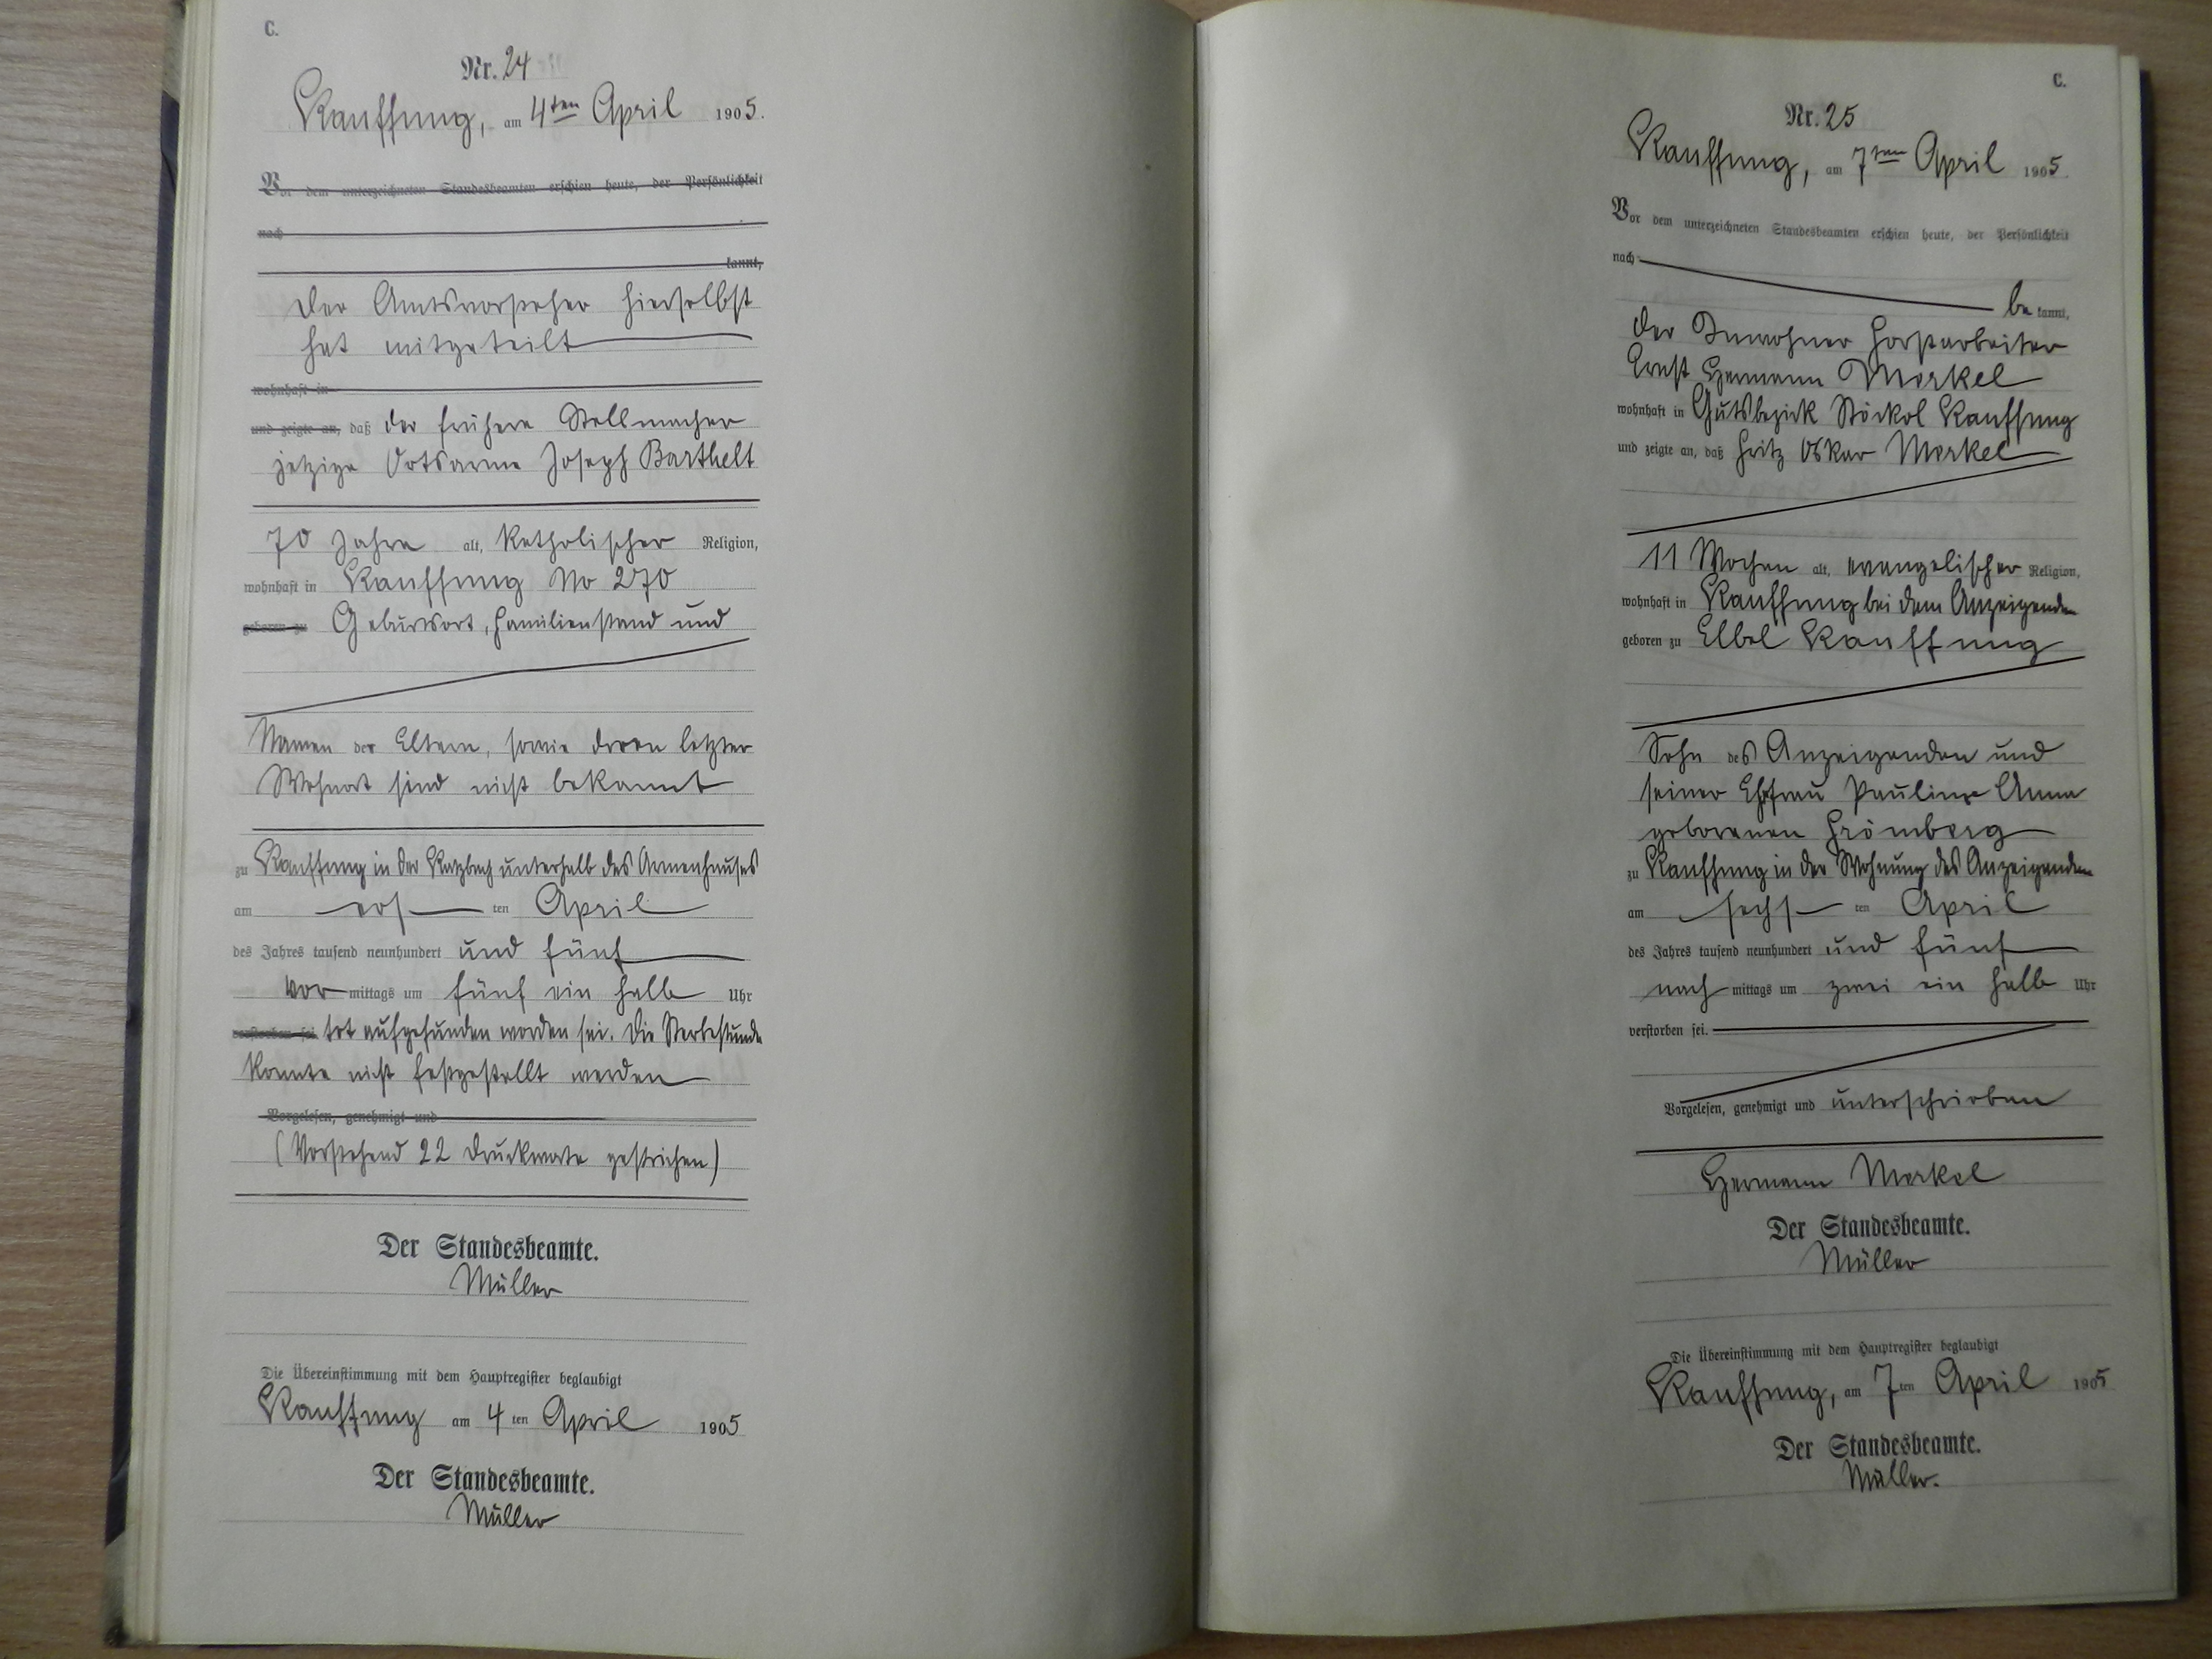 C.
Nr. 24
Kauffung, am 4ten April 1905.
Vor dem unterzeichneten Standesbeamten erschien heute, der Persönlichkeit
nach
kannt,
der Amtsvorsteher hierselbst
hat mitgeteilt
wohnhaft in
und zeigte an, daß der frühere Stellmacher
jetzige Ortsarme Joseph Barthelt
70 Jahre alt, katholischer Religion,
wohnhaft in Kauffung No 270
geboren zu Geburtsort, Familienstand und
Namen der Eltern, sowie deren letzter
Wohnort sind nicht bekannt
zu Kauffung in der Katzbach unterhalb des Armenhauses
am ers ten April
des Jahres tausend neunhundert und fünf
vor mittags um fünf ein halb Uhr
verstorben sei tot aufgefunden worden sei. Die Sterbestunde
konnte nicht festgestellt werden
Vorgelesen, genehmigt und
(Vorstehend 22 Druckworte gestrichen)
Der Standesbeamte.
Müller
Die Übereinstimmung mit dem Hauptregister beglaubigt
Kauffung am 4 ten April 1905
Der Standesbeamte.
Müller
C.
Nr. 25
Kauffung, am 7ten April 1905.
Vor dem unterzeichneten Standesbeamten erschien heute, der Persönlichkeit
nach
be kannt,
der Inwohner Forstarbeiter
Ernst Hermann Merkel
wohnhaft in Gutsbezirk Stöckel Kauffung
und zeigte an, daß Fritz Oskar Merkel
11 Wochen alt, evangelischer Religion,
wohnhaft in Kauffung bei dem Anzeigenden
geboren zu Elbel Kauffung
Sohn des Anzeigenden und
seiner Ehefrau Pauline Anna
geborenen Frömberg
zu Kauffung in der Wohnung des Anzeigenden
am sechs ten April
des Jahres tausend neunhundert und fünf
nach mittags um zwei ein halb Uhr
verstorben sei.
Vorgelesen, genehmigt und unterschrieben
Hermann Merkel
Der Standesbeamte.
Müller
Die Übereinstimmung mit dem Hauptregister beglaubigt
Kauffung, am 7 ten April 1905
Der Standesbeamte.
Müller.